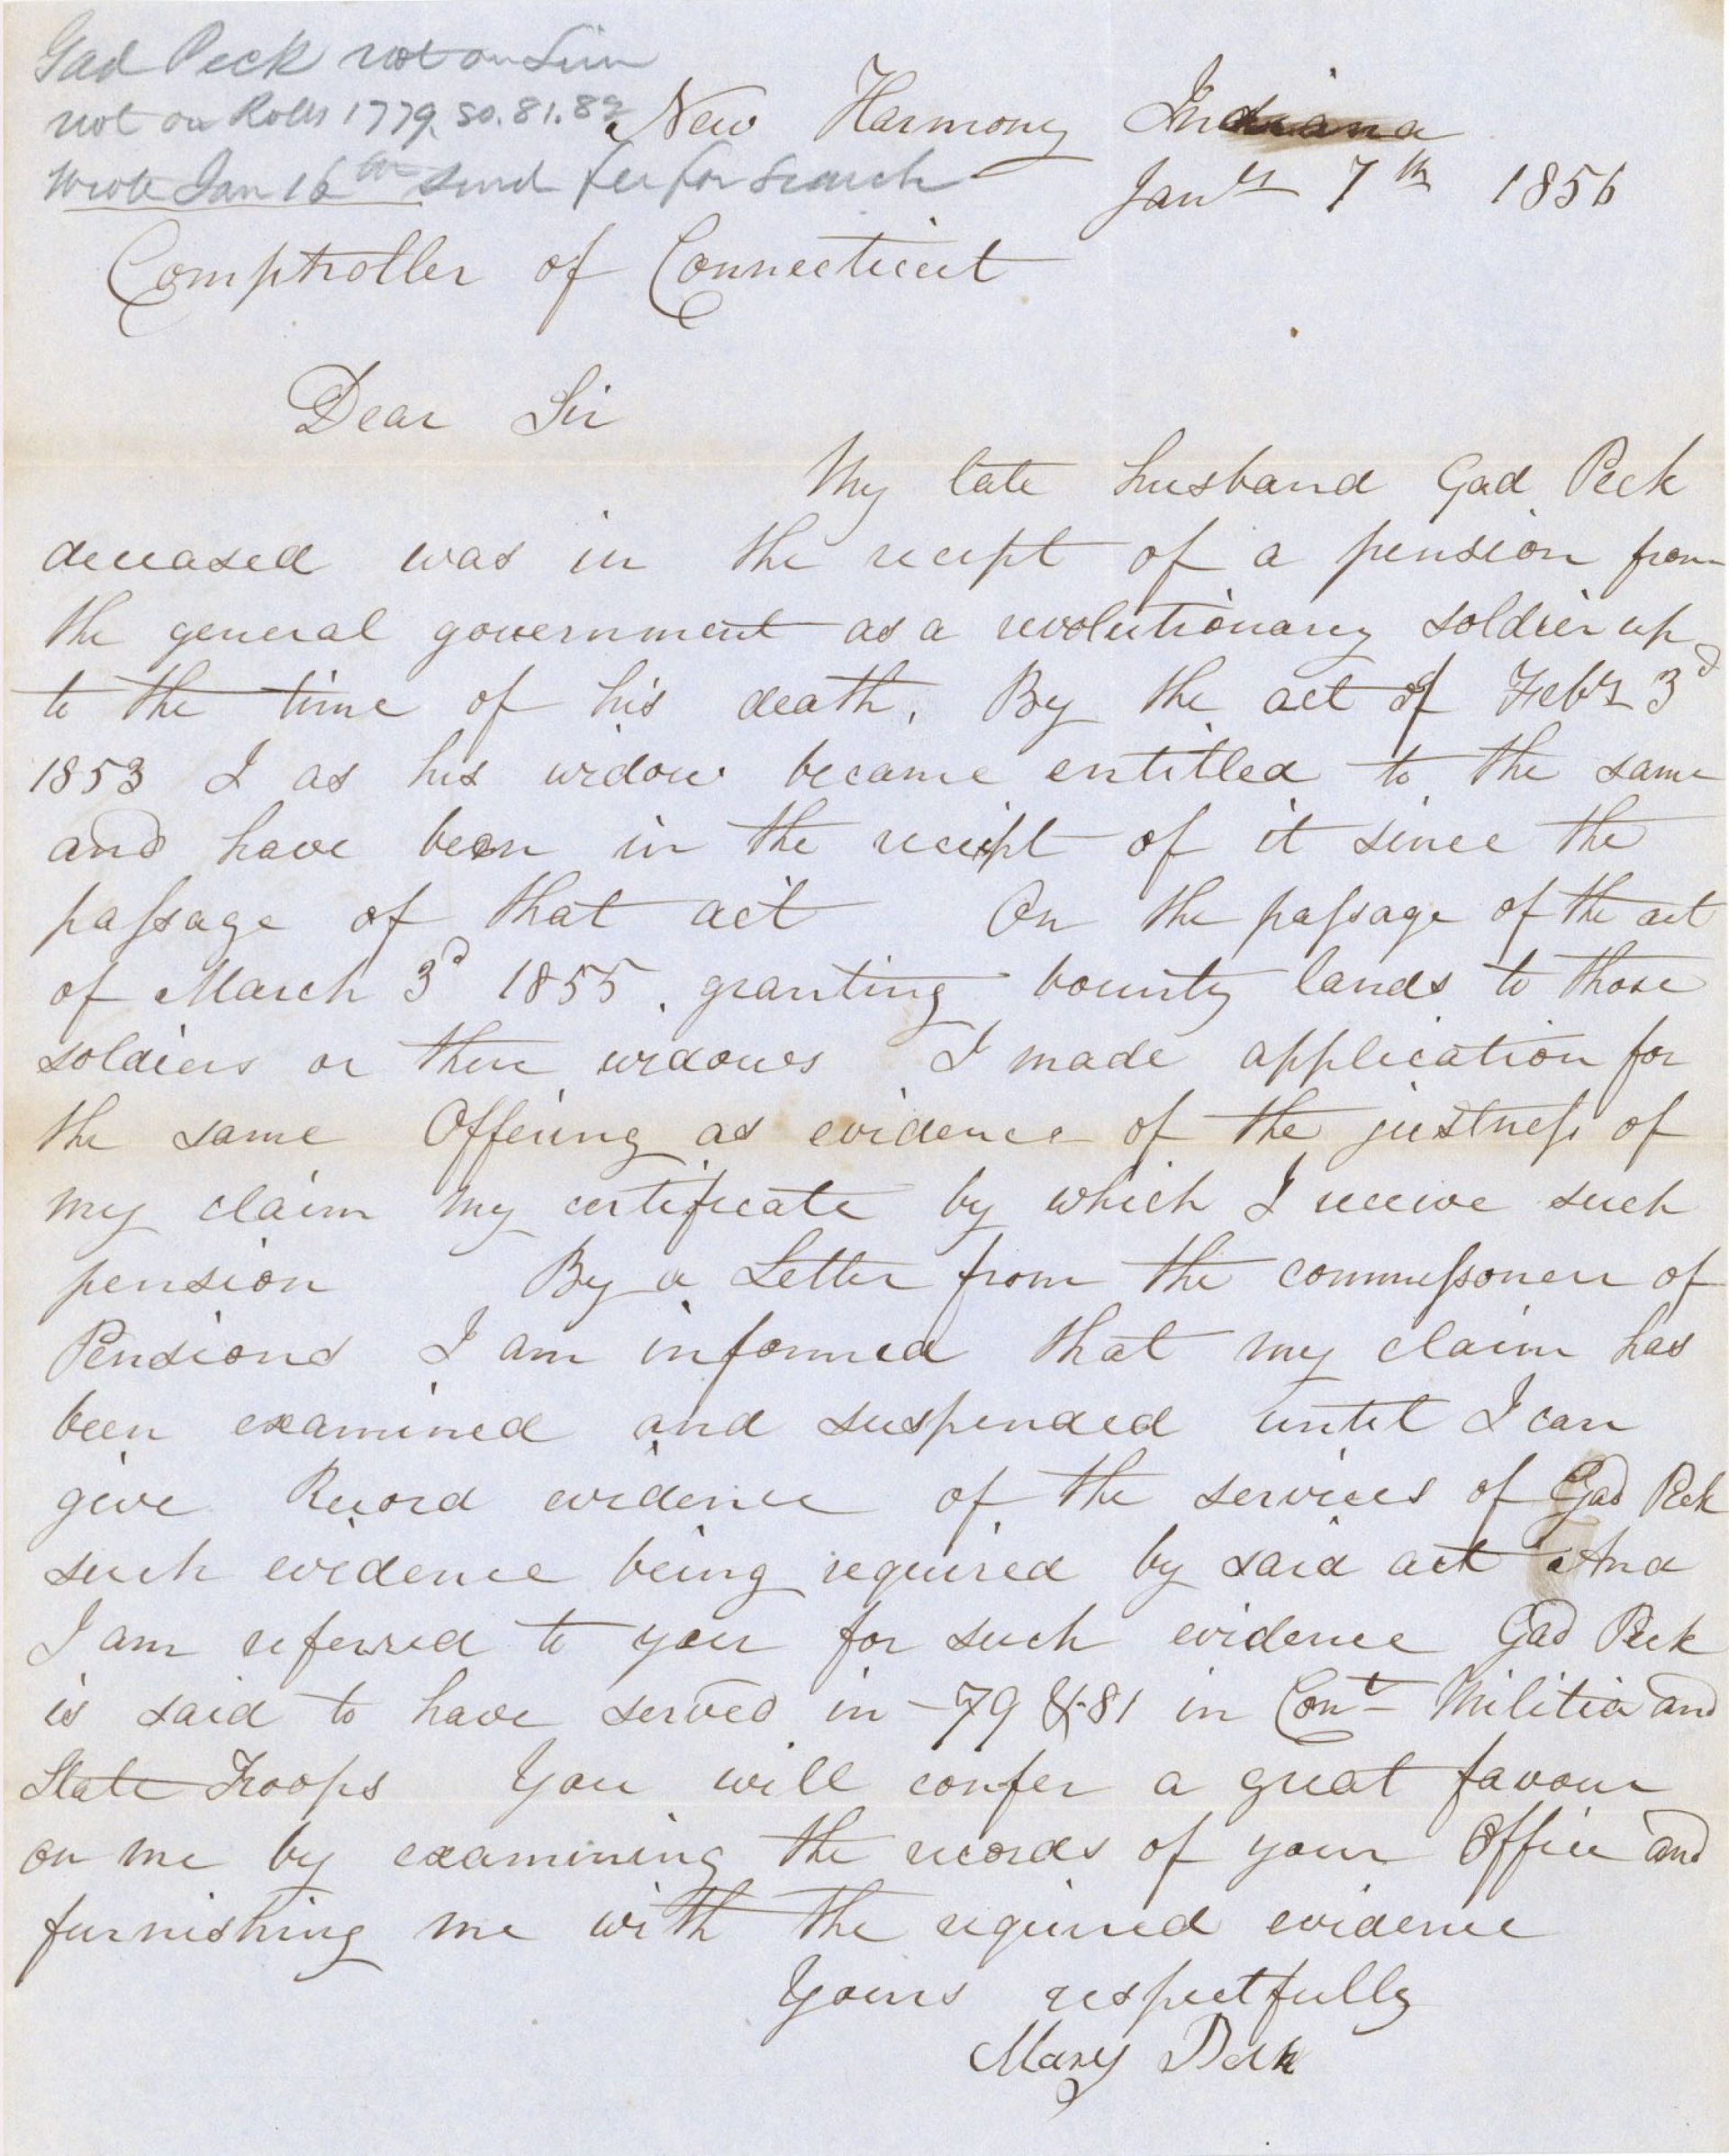 Gad Peck not on Line
not on Rolls 1779. 80. 81. 82
Wrote Jan 16th send fee for search
New Harmony Indiana
Jany 7th 1856
Comptroller of Connecticut
Dear Sir
My late husband Gad Peck
deceased was in the recept of a pension from
the general government as a revolutionary soldier up
to the time of his death. By the act of Feby 3d
1853 I as his widow became entitled to the same
and have been in the receipt of it since the
passage of that act On the passage of the act
of March 3d 1855. granting bounty lands to those
soldiers or there widows I made application for
the same Offering as evidence of the justness of
my claim my certificate by which I receive such
pension By a Letter from the commissoner of
Pensions I am informed that my claim has
been examined and suspended until I can
give Record evidence of the services of Gad Peck
such evidence being required by said act And
I am referred to you for such evidence Gad Peck
is said to have served in -79 & 81 in Cont Militia and
State Troops You will confer a great favour
on me by examining the records of your Office and
furnishing me with the required evidence
Yours respectfully
Mary Peck